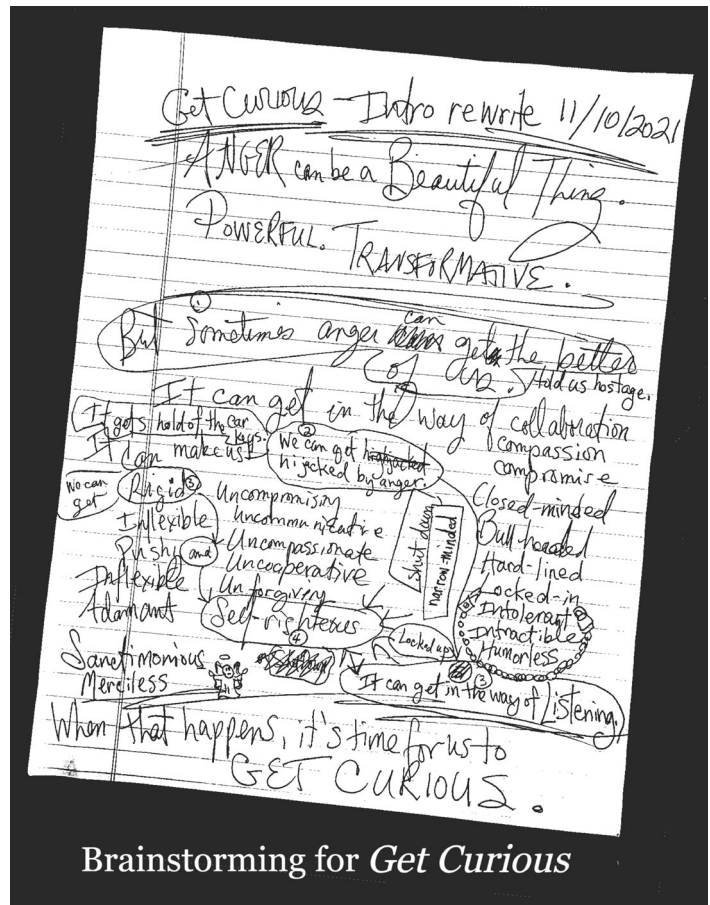 Get Curious - Intro rewrite 11/10/2021
ANGER can be a Beautiful Thing.
POWERFUL. TRANSFORMATIVE.
①
But Sometimes anger can get the better
of us. Hold us hostage.
It can get in the way of collaboration
compassion
compromise
It gets hold of the car keys.
It can make us
②
We can get hijacked by anger.
We can get
Rigid ③
Inflexible
Pushy and
Inflexible
Adamant
Sanctimonious
Merciless
Uncompromising
Uncommunicative
Uncompassionate
Uncooperative
Unforgiving
Self-righteous
④
Shut down
narrow-minded
Closed-minded
Bull-headed
Hard-lined
Locked-in
Intolerant
Intractible
Humorless
Locked up
③
It can get in the way of Listening.
When that happens, it's time for us to
GET CURIOUS.
Brainstorming for Get Curious